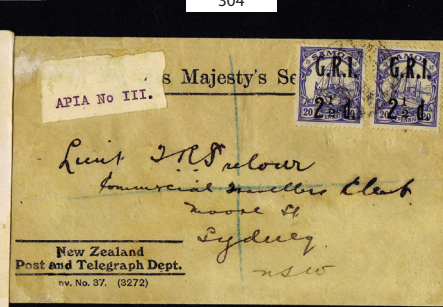 304
s Majesty's Se
APIA No III.
SAMOA
G.R.I.
2½ d.
20 20
G.R.I.
2½ d.
20
Lieut
Commercial Travellers Club
Moore St
Sydney
NSW
New Zealand
Post and Telegraph Dept.
nv. No. 37. (3272)